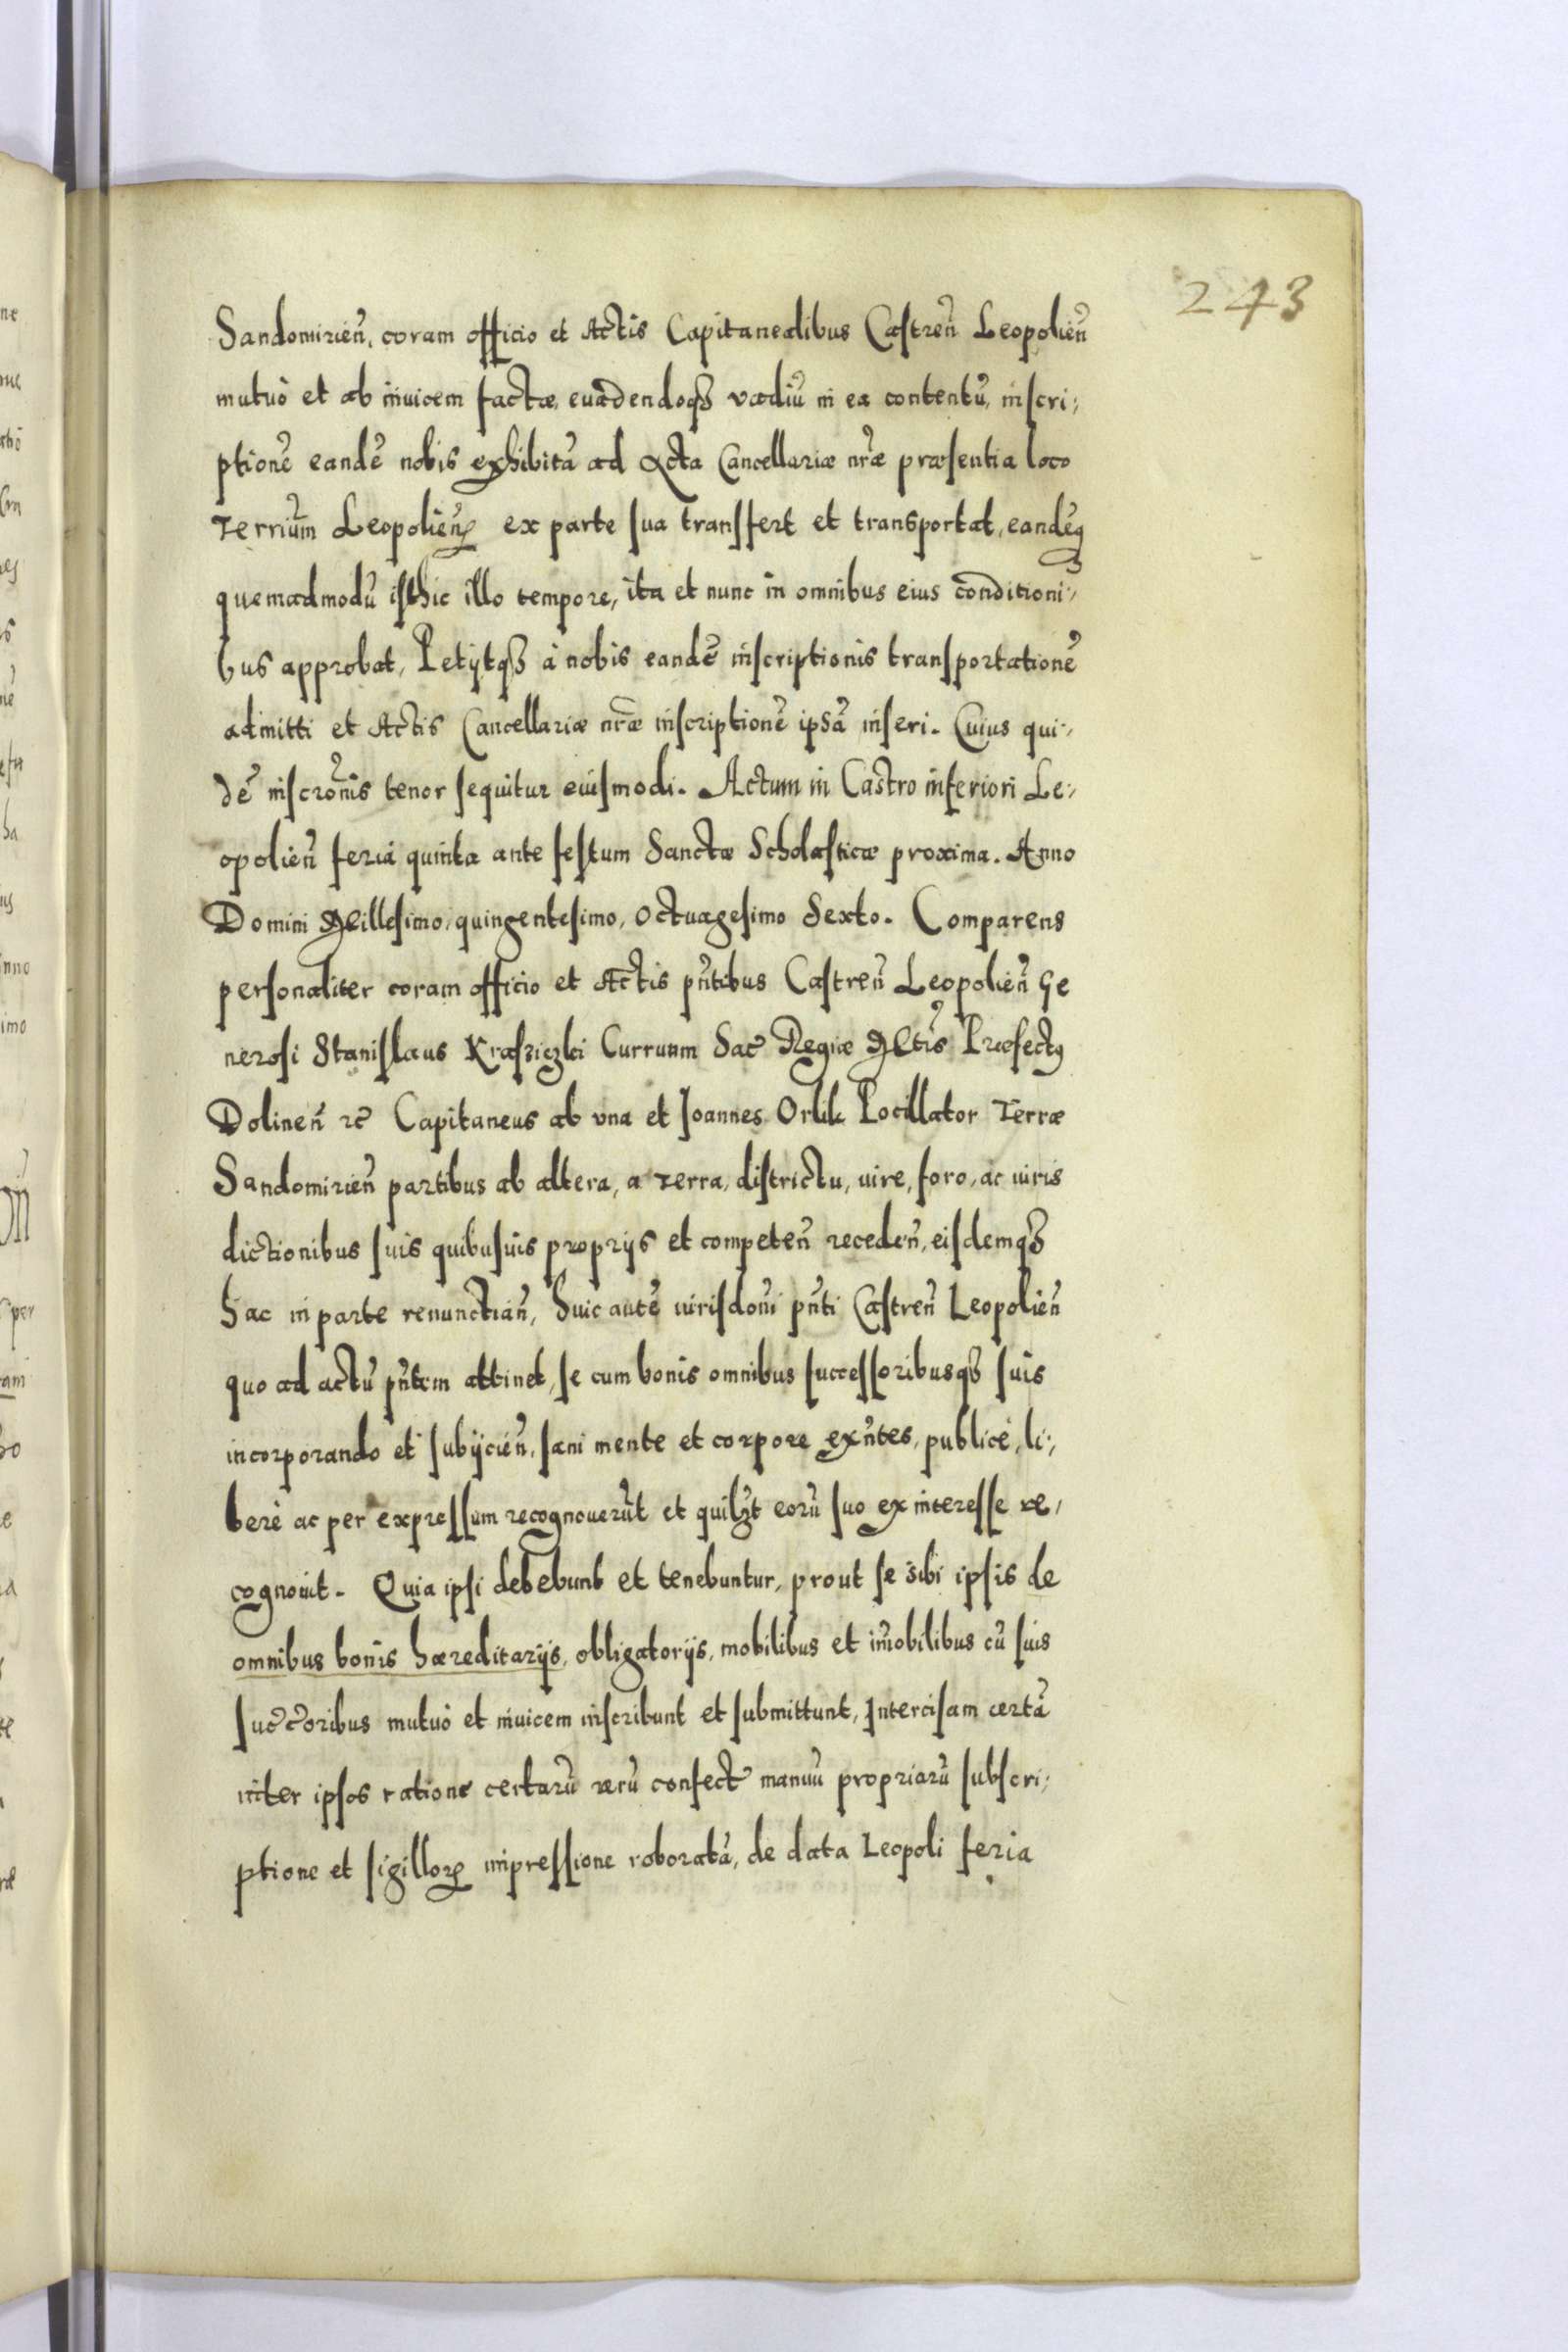 243
Sandomirień, coram officio et Actis Capitanealibus Castreń Leopolień
mutuò et ab inuicem factæ, euadendoqȝ vadiū in ea contentū, inscri:
ptionē eandē nobis exhibitā ad Acta Cancellariæ nr̃æ præsentia loco
Terriūm Leopolień ex parte sua transfert et transportat, eandēqȝ
quemadmodū isthic illo tempore, ita et nunc in omnibus eius conditioni:
bus approbat, Petijtqȝ à nobis eandē inscriptionis transportationē
admitti et Actis Cancellariæ nr̃æ inscriptionē ipsā inseri. Cuius qui:
dē inscrõnis tenor sequitur eiusmodi. Actum in Castro inferiori Le:
opolień feria quinta ante festum Sanctæ Scholasticæ proxima. Anno
Domini Millesimo, quingentesimo, Octuagesimo Sexto. Comparens
personaliter coram officio et Actis pñtibus Castreń Leopolień Ge
nerosi Stanislaus Krasziczki Curruum Sac̃ Regiæ Mtis Præfectꝰ
Dolineń ꝛc̃ Capitaneus ab vna et Joannes Orlik Pocillator Terræ
Sandomirień partibus ab altera, a terra, districtu, iure, foro, ac iuris
dictionibus suis quibusuis proprijs et competeń recedeń, eisdemqȝ
hac in parte renunctiań, huic autē iurisdoñi pñti Castreń Leopolień
quo ad actū pñtem attinet, se cum bonis omnibus successoribusqȝ suis
incorporando et subijcień, sani mente et corpore exñtes, publicè, li:
berè ac per expressum recognouerūt et quilꝫt eorū suo ex interesse re:
cognouit. Quia ipsi debebunt et tenebuntur, prout se sibi ipsis de
omnibus bonis hæreditarijs, obligatorijs, mobilibus et im̃obilibus cū suis
suc̃c̃oribus mutuò et inuicem inscribunt et submittunt, Intercisam certā
inter ipsos ratione certarū rerū confect̃ manuū propriarū subscri:
ptione et sigilloꝝ impressione roboratā, de data Leopoli feria